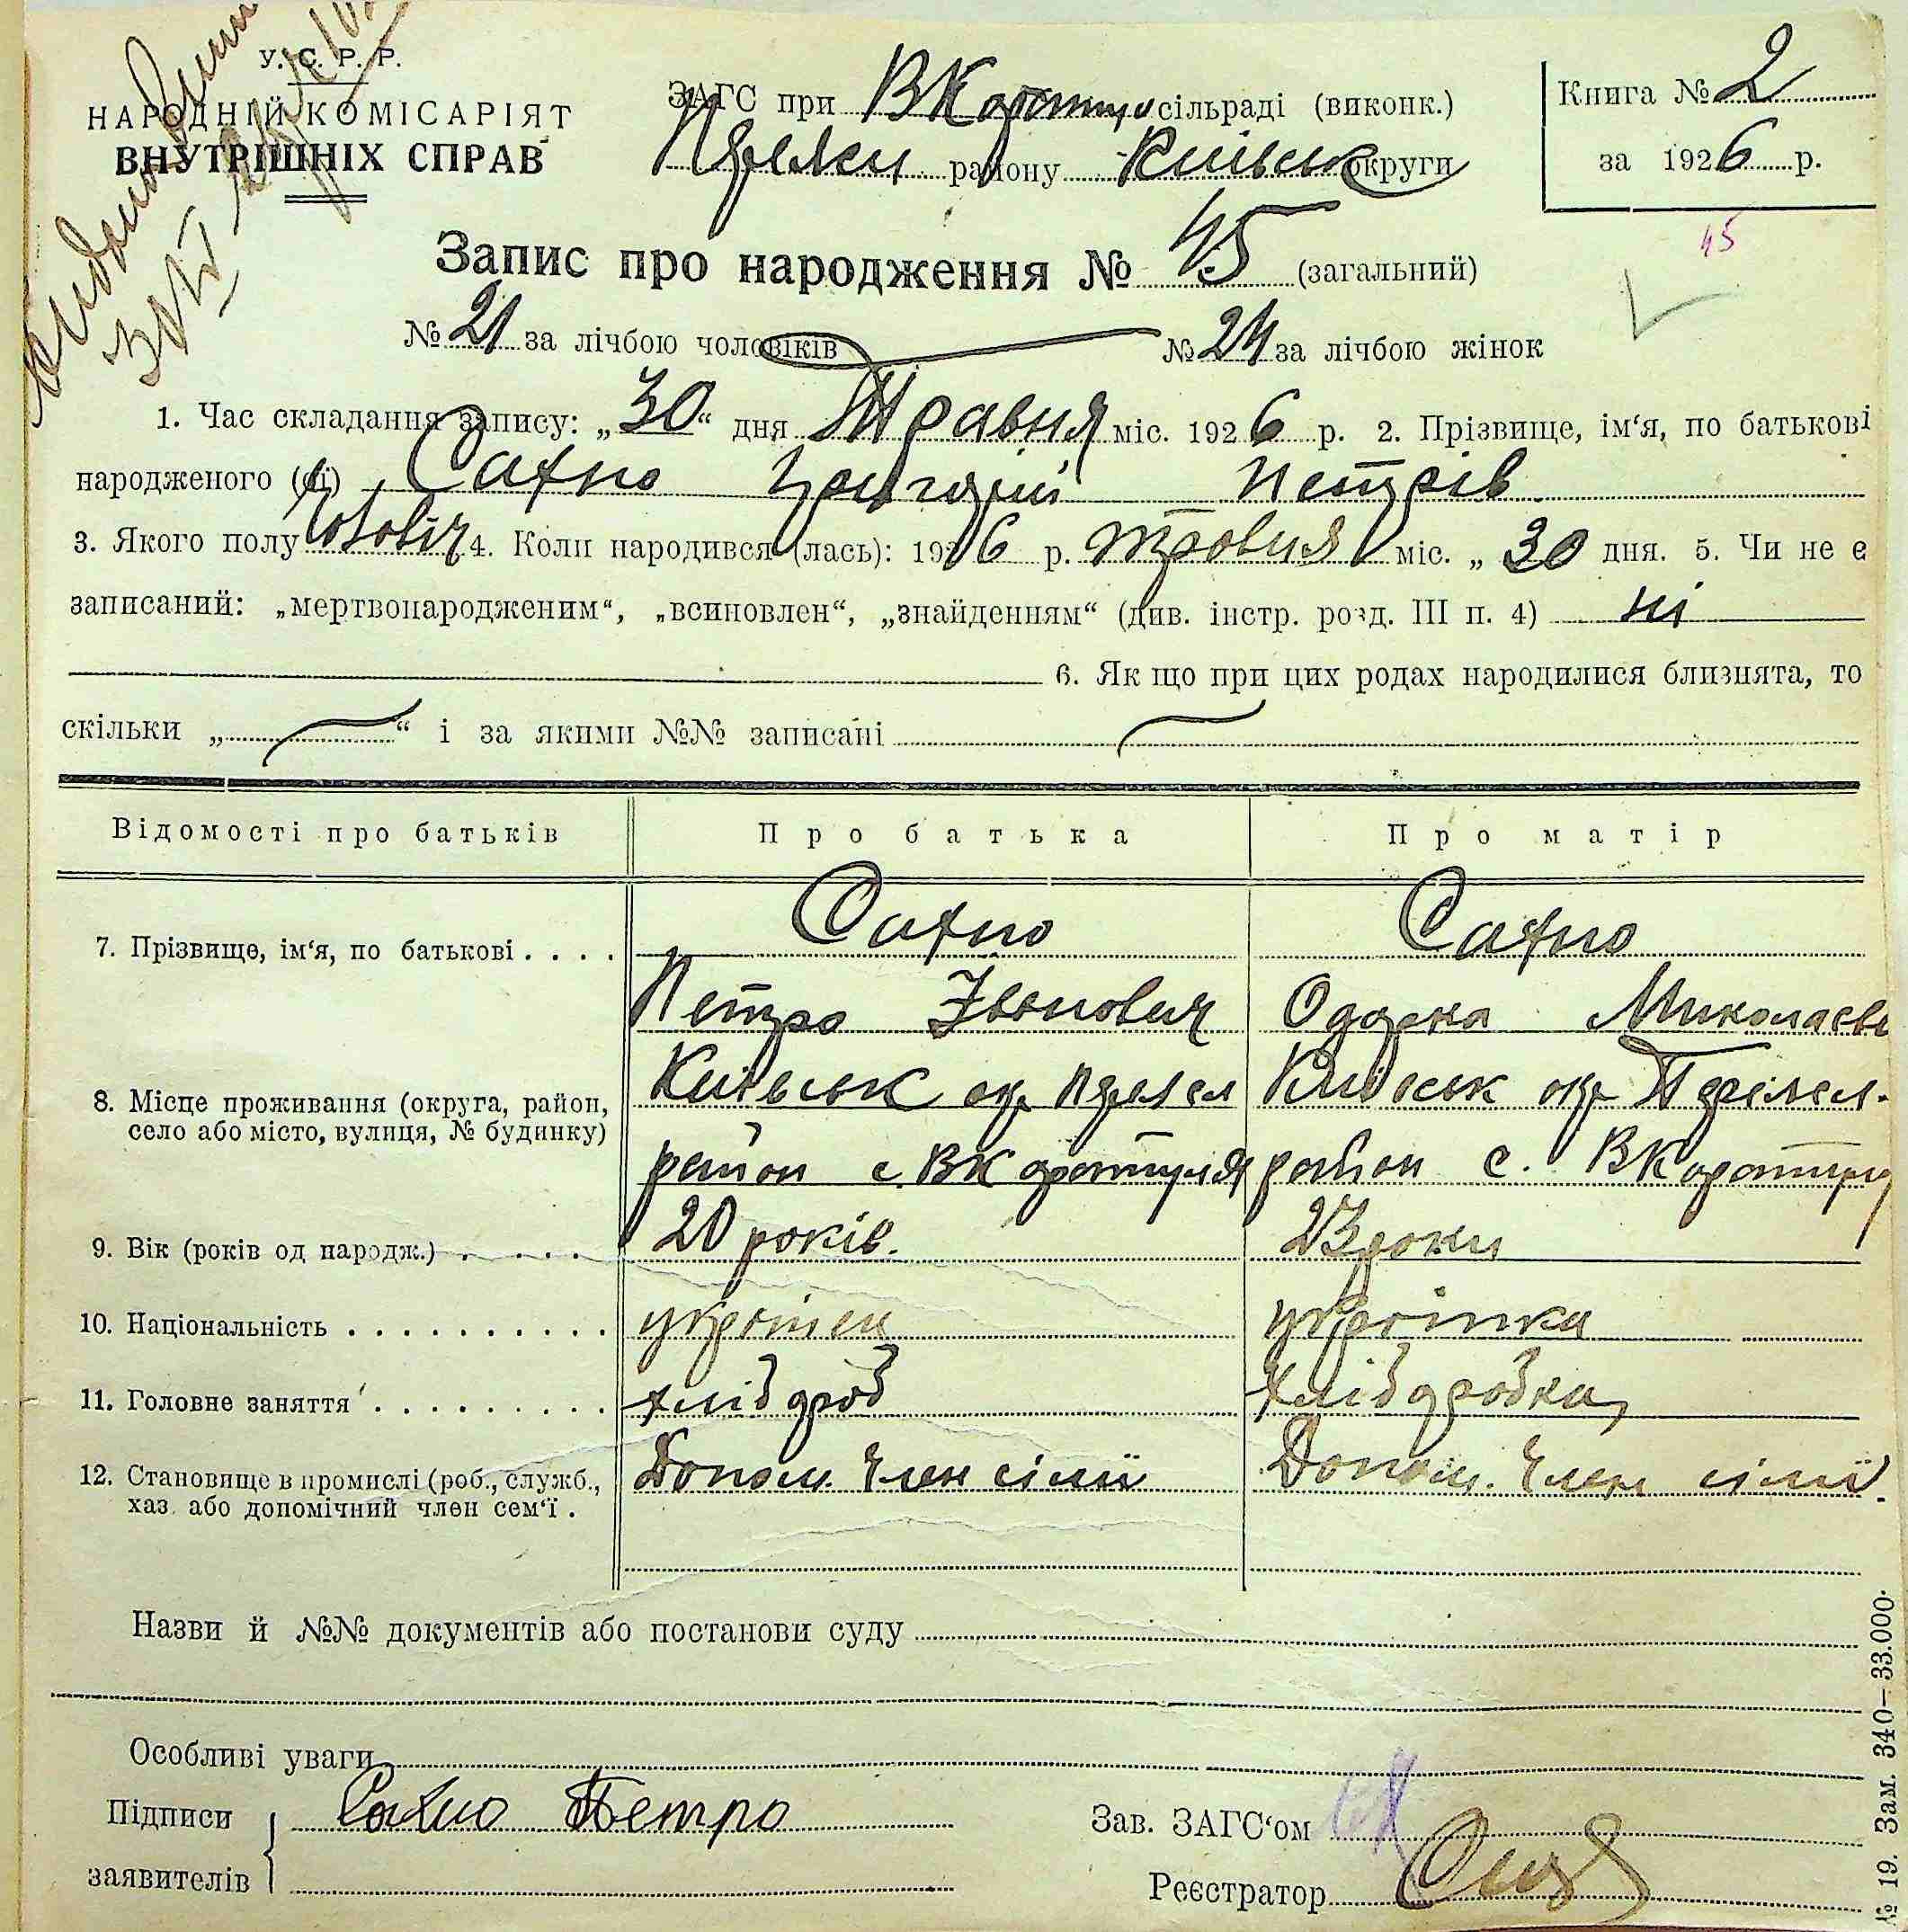 У. С. Р. Р.
НАРОДНІЙ КОМІСАРІЯТ
ВНУТРІШНІХ СПРАВ
ЗАГС при сільраді (виконк.)
району Київськ округи
Книга № 2
за 1926 р.
45
Запис про народження № 45 (загальний)
№ 21 за лічбою чоловіків № 24 за лічбою жінок
1. Час складання запису: „30“ дня Травня міс. 1926 р. 2. Прізвище, ім‘я, по батькові
народженого (ої) Сахно Григорій Петрів
3. Якого полу чоловіч 4. Коли народився (лась): 1926 р. травня міс. „ 30 дня. 5. Чи не є
записаний: „мертвонародженим“, „всиновлен“, „знайденням“ (див. інстр. розд. III п. 4) ні
6. Як що при цих родах народилися близнята, то
скільки „ “ і за якими №№ записані
Відомості про батьків Про батька Про матір
7. Прізвище, ім‘я, по батькові . . . . Сахно Сахно
Петро Іванович Одарка Миколаєв
8. Місце проживання (округа, район,
село або місто, вулиця, № будинку)
Київськ окр Переясл Київськ окр Переясл.
район с. ВКаратуля район с. ВКаратуля
9. Вік (років од народж.) . . . . 20 років. 23 роки
10. Національність . . . . . . . . . . українец українка
11. Головне заняття . . . . . . . . . хлібороб хліборобка
12. Становище в промислі (роб., служб.,
хаз. або допомічний член сем‘ї .
Допом. член сімї Допом. член сімї.
Назви й №№ документів або постанови суду
Особливі уваги
Підписи
заявителів
Сахно Петро
Зав. ЗАГС‘ом
Реєстратор
№ 19. Зам. 340—33.000.